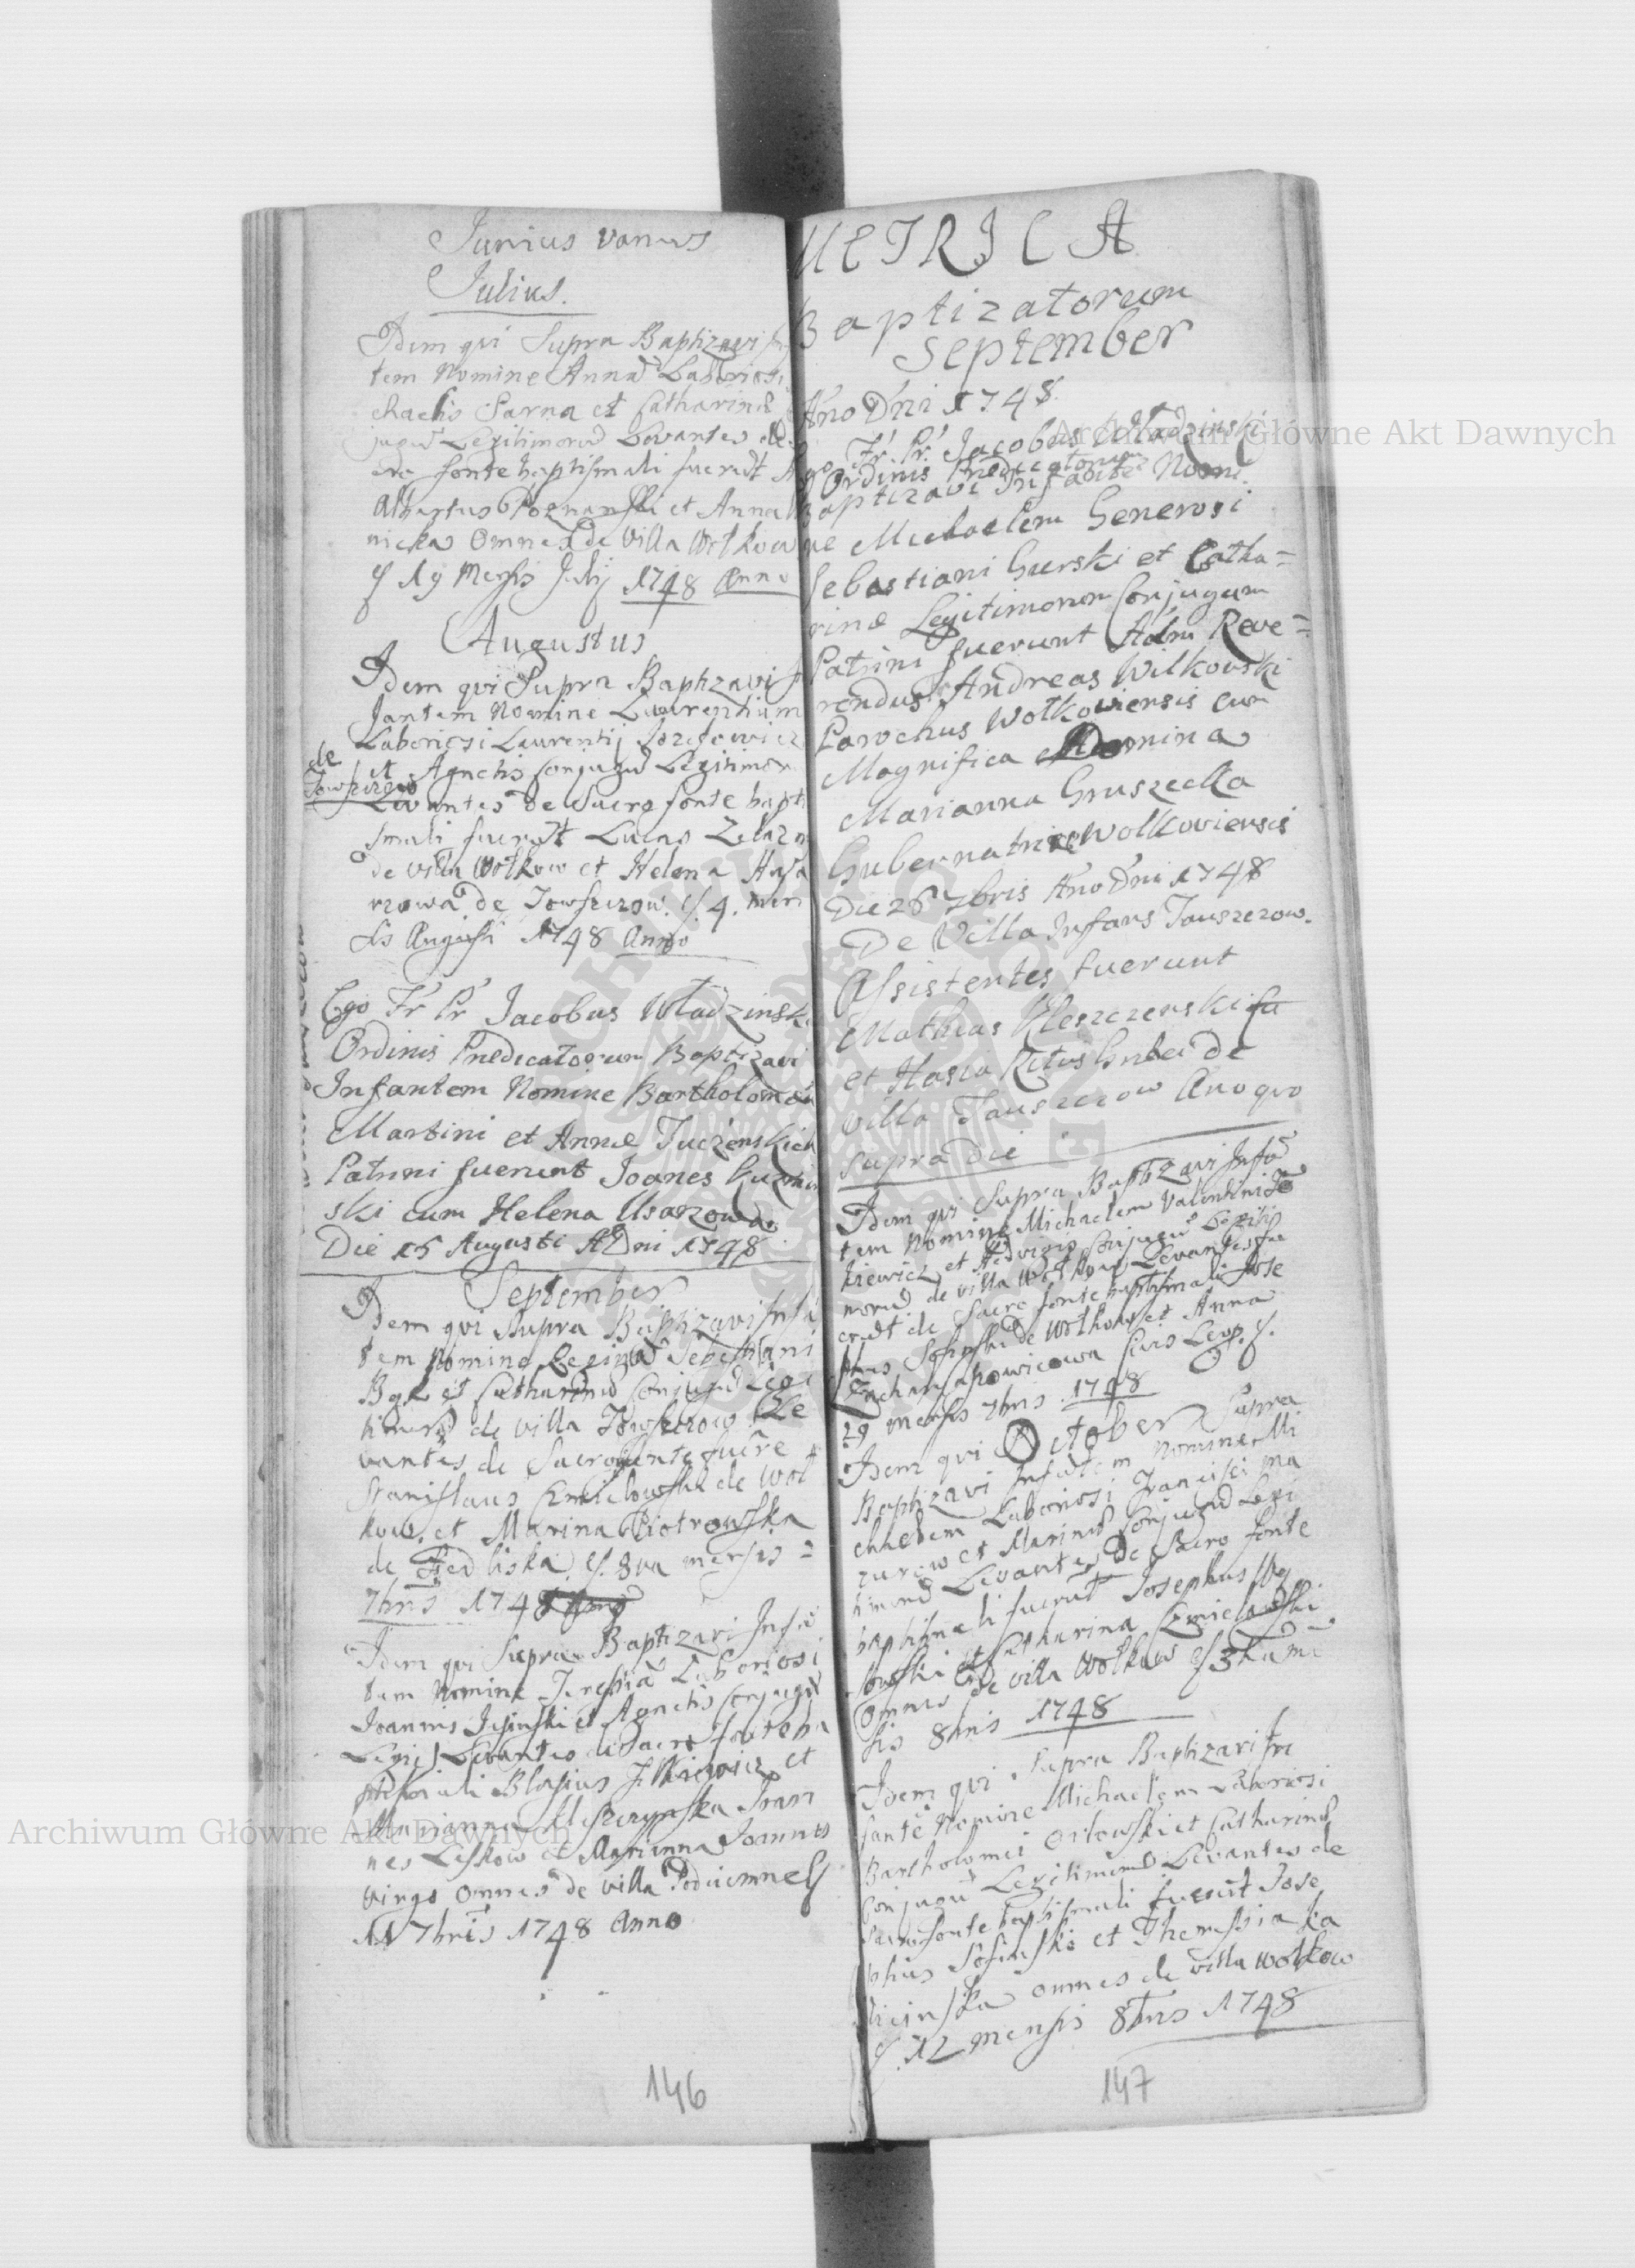 Junius vanus
Julius.
Idem qui Supra Baptizavi
tem Nomine Annã Laboriosi
chaelis Sarna et Catharinæ
jugũ Legitimorũ Levantes de
cro fonte baptismali fuerũt
Albertus Poznanski et Anna
nicka Omnes de Villa Wołkow
19 Mensis Julij 1748 Anno
Augustus
Idem qui Supra Baptizavi
fantem Nomine Laurentium
Laboriosi Laurentij
de Towszczow
et Agnetis Conjugũ Legitimor
Levantes de Sacro fonte bapti
smali fuerũt Lucas Zelazn
de villa Wołkow et Helena
de Towszczow. 4. men
sis Augusti 1748 Anno
Ego Fr Pr Jacobus Władzinski
Ordinis Predicatorum Baptizavi
Infantem Nomine Bartholomeu
Martini et Annæ Juczenskich
Patrini fuerunt Joanes Kuzmin
ski cum Helena Usarzowa
Die 15 Augusti ADni 1748
September
Idem qui Supra Baptizavi Infã
tem Nomine Reginã Sebestiani
et Catharinæ Conjugũ Legi
timorũ de villa Towszczow. Le
vantes de Sacro fonte fuere
Stanislaus Cmielowski de Woł
kow. et Marina Piotrowska
de Siedliska. 8va mensis =
7bris 1748
Idem qui Supra Baptizavi Infã
tem Nomine Teresiã Laboriosi
Joannis Jesinski et Agnetis Conjugũ
Legit Levantes de Sacro fonte ba
ptismali Blasius et
Marianna Kleszczynska Joan
nes Leskow et Marianna Joannes
virgo Omnes de villa Podciemne
11 7bris 1748 Anno
146
METRICA
Baptizatorum
September
Ãno Dñi 1748
Ego Fr. Pr. Jacobus Władzinski
Ordinis Predicatorum
Baptizavi Infãte Nomi
ne Michaelem Generosi
Sebastiani Gurski et Catha=
rinæ Legitimorum Conjugum
Patrini fuerunt Adm Reve=
rendus Andreas Wilkowski
Parochus Wołkoviensis cum
Magnifica Domina
Marianna Gruszecka
Gubernatrice Wołkoviensis
Die 26 7bris Ãno Dni 1748
De Villa Infans Tauszczow.
Assistentes fuerunt
Mathias Kleszczenski
et Hasia de
villa Tauszczow Ano quo
supra Die
Idem qui Supra Baptizavi Infã
tem Nomine Michaelem Valentini
kiewicz et Hedvigis Conjugũ Legiti
morũ de villa Wołkow Levantes fu
erũt de Sacro fonte baptismali Jose
phus Sosinski de Wołkow et Anna
Leop.
29 mensis 7bris 1748
October
Idem qui Supra
Baptizavi Infãtem Nomine Mi
chaelem Laboriosi Francisci Ma
zurow et Marinæ Conjugũ Legi
timorũ Levantes De Sacro fonte
baptismali fuerũt Josephus
et Catharina Cmielowski
Omnes de villa Wołkow 3tia me
sis 8bris 1748
Idem qui supra Baptizavi In
fantẽ Nomine Michaelem Laboriosi
Bartholomei Orłowski et Catharinæ
Conjugũ Legitimorũ Levantes de
Sacro fonte baptismali fuerũt Jose
phus Sosinski et
omnes de villa Wołkow
12 mensis 8bris 1748
147
Archiwum Główne Akt Dawnych
Archiwum Główne Akt Dawnych